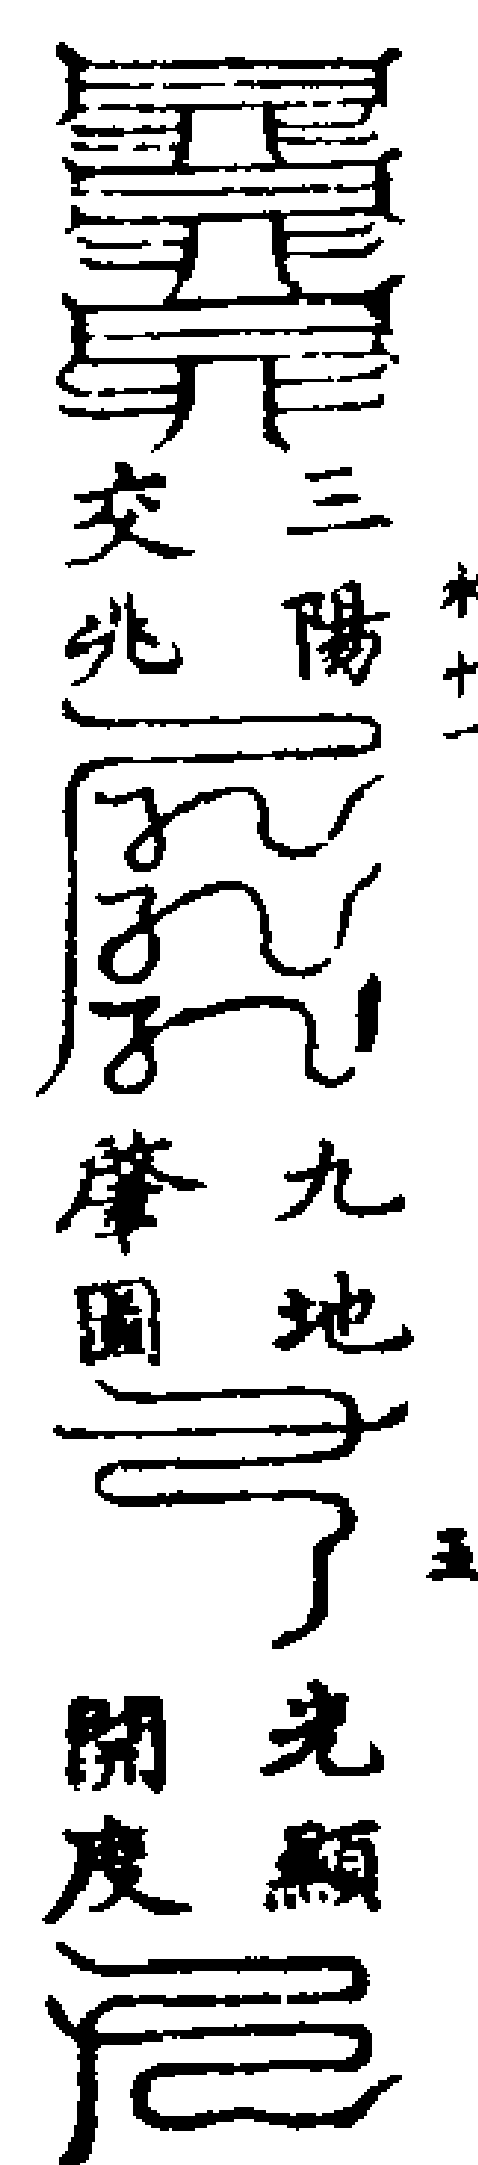 三陽
交兆
九地
肇圖
光顯
開度
十一
五